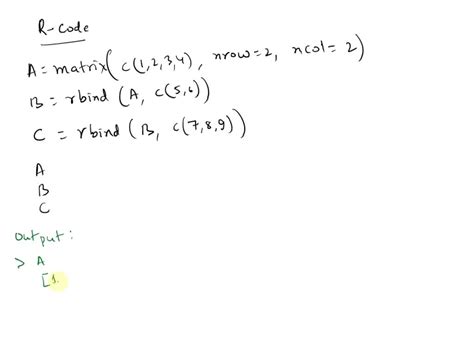 R-Code
A = matrix( c(1,2,3,4), nrow=2, ncol= 2)
B = rbind (A, c(5,6))
C = rbind (B, c(7,8,9))
A
B
C
Output:
> A
[1.